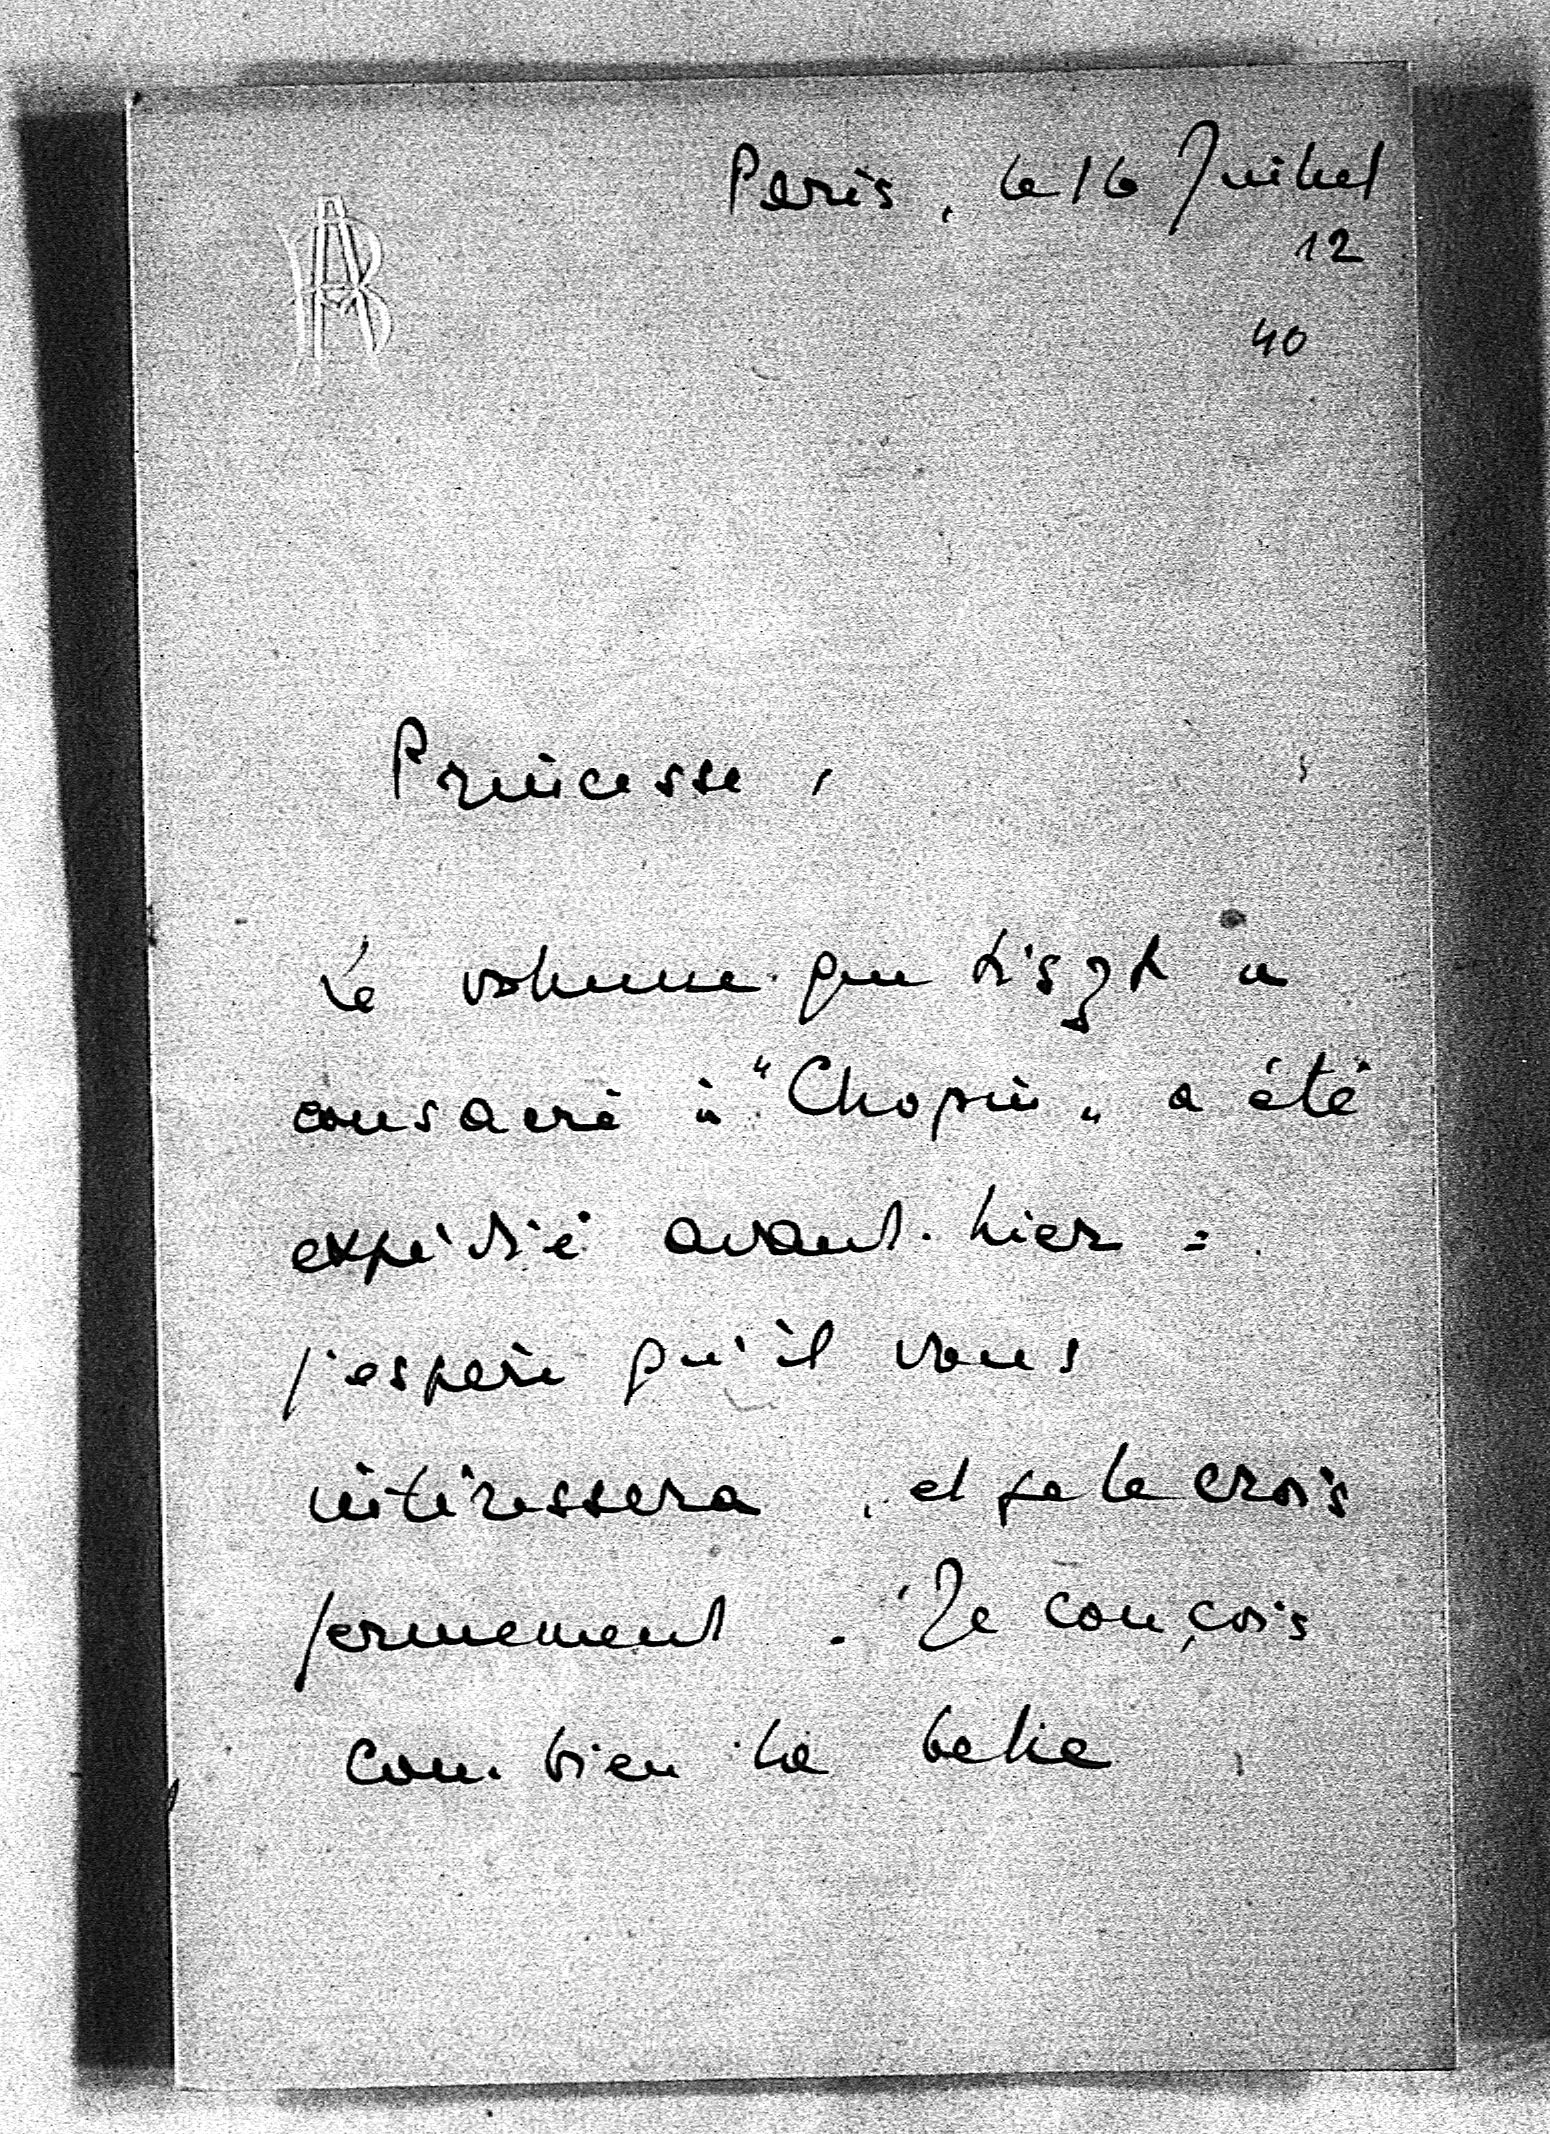 Paris, le 16 Juillet
12
40
Princesse,
Le volume que Liszt a
consacré à "Chopin" a été
expédié avant-hier =
j'espère qu'il vous
intéressera, et je le crois
fermement. Je conçois
combien la belle